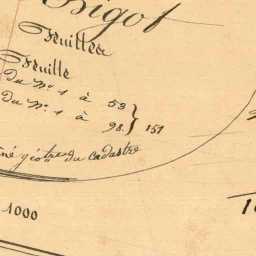 Bigot
Feuilles
Feuille
du N° 1 à 53
du N° 1 à 98 } 151
du cadastre
1000